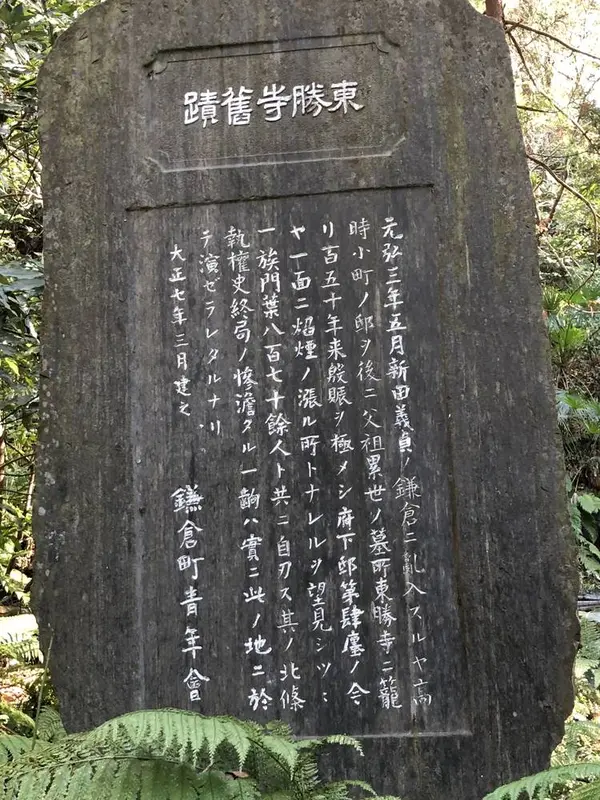 東勝寺舊蹟
元弘三年五月新田義貞ノ鎌倉ニ乱入スルヤ高
時小町ノ邸ヲ後ニ父祖累世ノ墓所東勝寺ニ籠
リ百五十年来殷賑ヲ極メシ府下邸第肆廛ノ今
ヤ一面ニ焰煙ノ漲ル所トナレルヲ望見シツヽ
一族門葉八百七十餘人ト共ニ自刃ス其ノ北條
執權史終局ノ惨澹タル一齣ハ實ニ此ノ地ニ於
テ演ゼラレタルナリ
大正七年三月建之
鎌倉町青年會